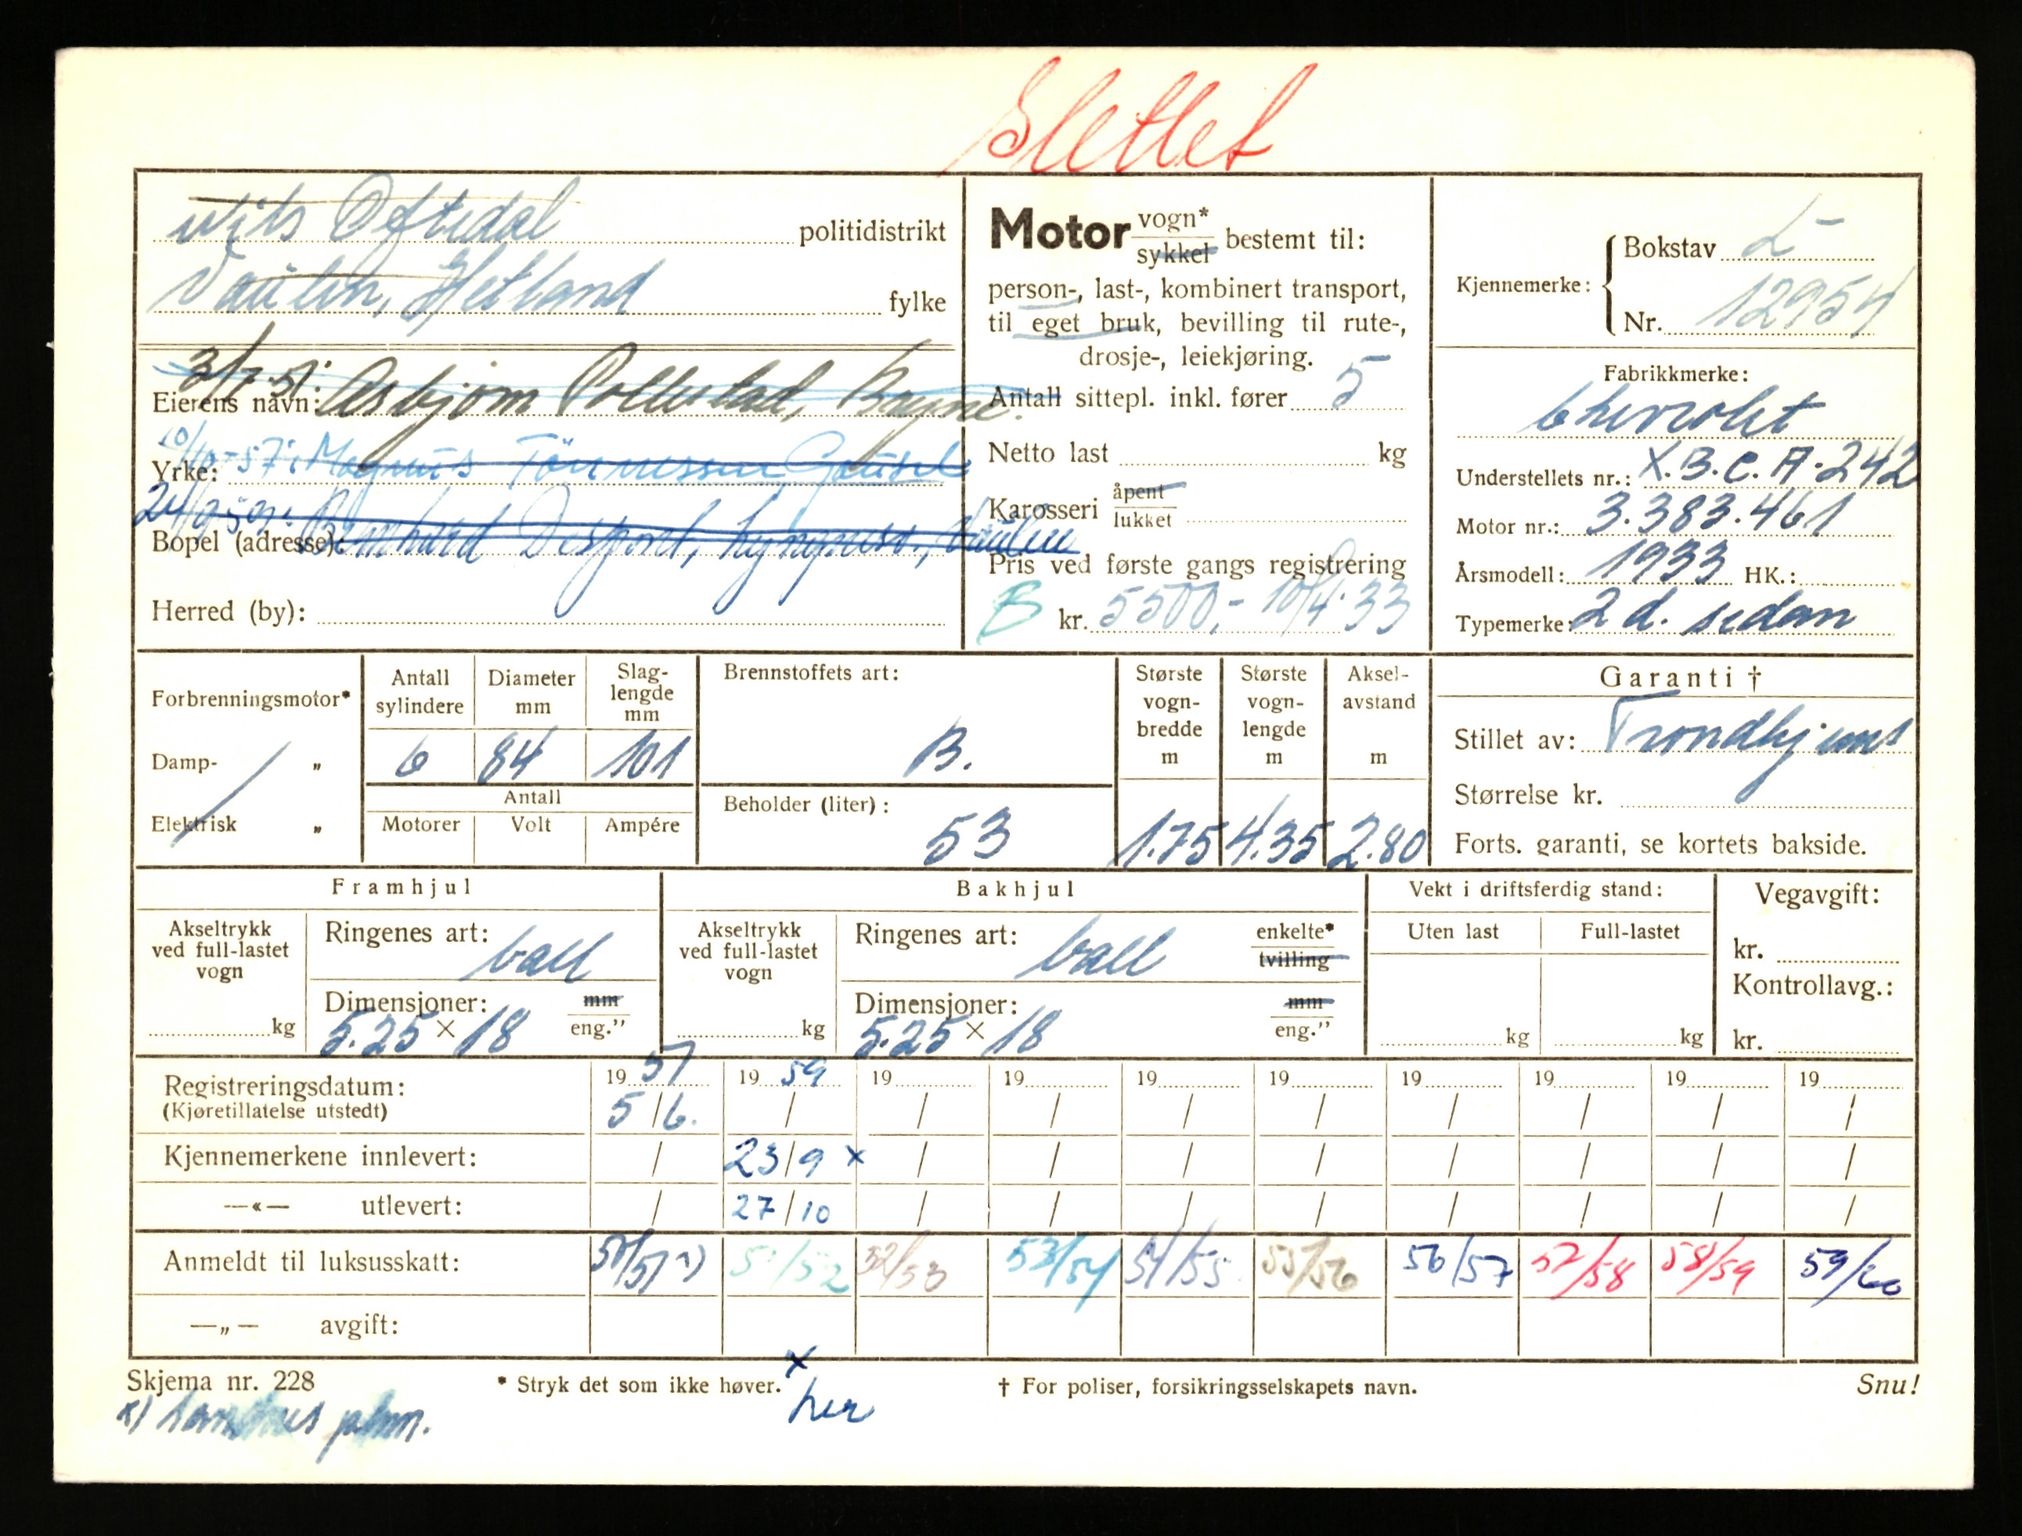 Slettet
Nils Oftedal politidistrikt
Vaulen, Hetland fylke
3/7-51: Asbjørn Pollestad, Bryne.
Eierens navn:
10/10-57: Magnus Tönnessen Gausel
Yrke:
24/9-59: Bernhard Desport, Lyngnesv., Vaulen
Bopel (adresse):
Herred (by):
Motor vogn* sykkel bestemt til:
person-, last-, kombinert transport,
til eget bruk, bevilling til rute-,
drosje-, leiekjøring.
Antall sittepl. inkl. fører 5
Netto last kg
Karosseri åpent lukket
Pris ved første gangs registrering
B kr. 5500,- 10/4-33
Kjennemerke: Bokstav L-
Nr. 12954
Fabrikkmerke:
Chevrolet
Understellets nr.: X.B.C.A-242
Motor nr.: 3.383.461
Årsmodell: 1933 HK.:
Typemerke: 2 d. sedan
Forbrenningsmotor*
Damp- „
Elektrisk „
Antall sylindere Diameter mm Slag-lengde mm
6 84 101
Antall
Motorer Volt Ampére
Brennstoffets art:
B.
Beholder (liter):
53
Største vogn-bredde m Største vogn-lengde m Aksel-avstand m
1.75 4.35 2.80
Garanti †
Stillet av: Trondhjems
Størrelse kr.
Forts. garanti, se kortets bakside.
Framhjul
Akseltrykk ved full-lastet vogn kg
Ringenes art: ball
Dimensjoner: mm eng."
5.25 × 18
Bakhjul
Akseltrykk ved full-lastet vogn kg
Ringenes art: ball enkelte* tvilling
Dimensjoner: mm eng."
5.25 × 18
Vekt i driftsferdig stand:
Uten last Full-lastet
kg kg
Vegavgift:
kr.
Kontrollavg.:
kr.
Registreringsdatum: 19 51 19 59 19 19 19 19 19 19 19 19
(Kjøretillatelse utstedt) 5/6. / / / / / / / / /
Kjennemerkene innlevert: / 23/9 x / / / / / / / /
—«— utlevert: / 27/10 / / / / / / / /
Anmeldt til luksusskatt: 50/51 x) 51/52 52/53 53/54 54/55 55/56 56/57 57/58 58/59 59/60
—„— avgift:
Skjema nr. 228 * Stryk det som ikke høver. † For poliser, forsikringsselskapets navn. Snu!
x her
x) Sandnes